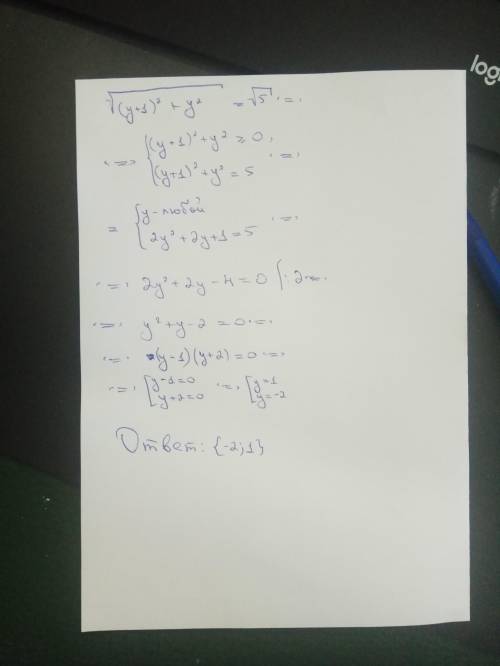 logi
√((y+1)² + y²) = √5 <=>
<=> { (y+1)² + y² ≥ 0,
(y+1)² + y² = 5 <=>
= { y - любой
2y² + 2y + 1 = 5 <=>
<=> 2y² + 2y - 4 = 0 | : 2 <=>
<=> y² + y - 2 = 0 <=>
<=> (y-1)(y+2) = 0 <=>
<=> [ y-1=0
y+2=0 <=> [ y=1
y=-2
Ответ: {-2;1}